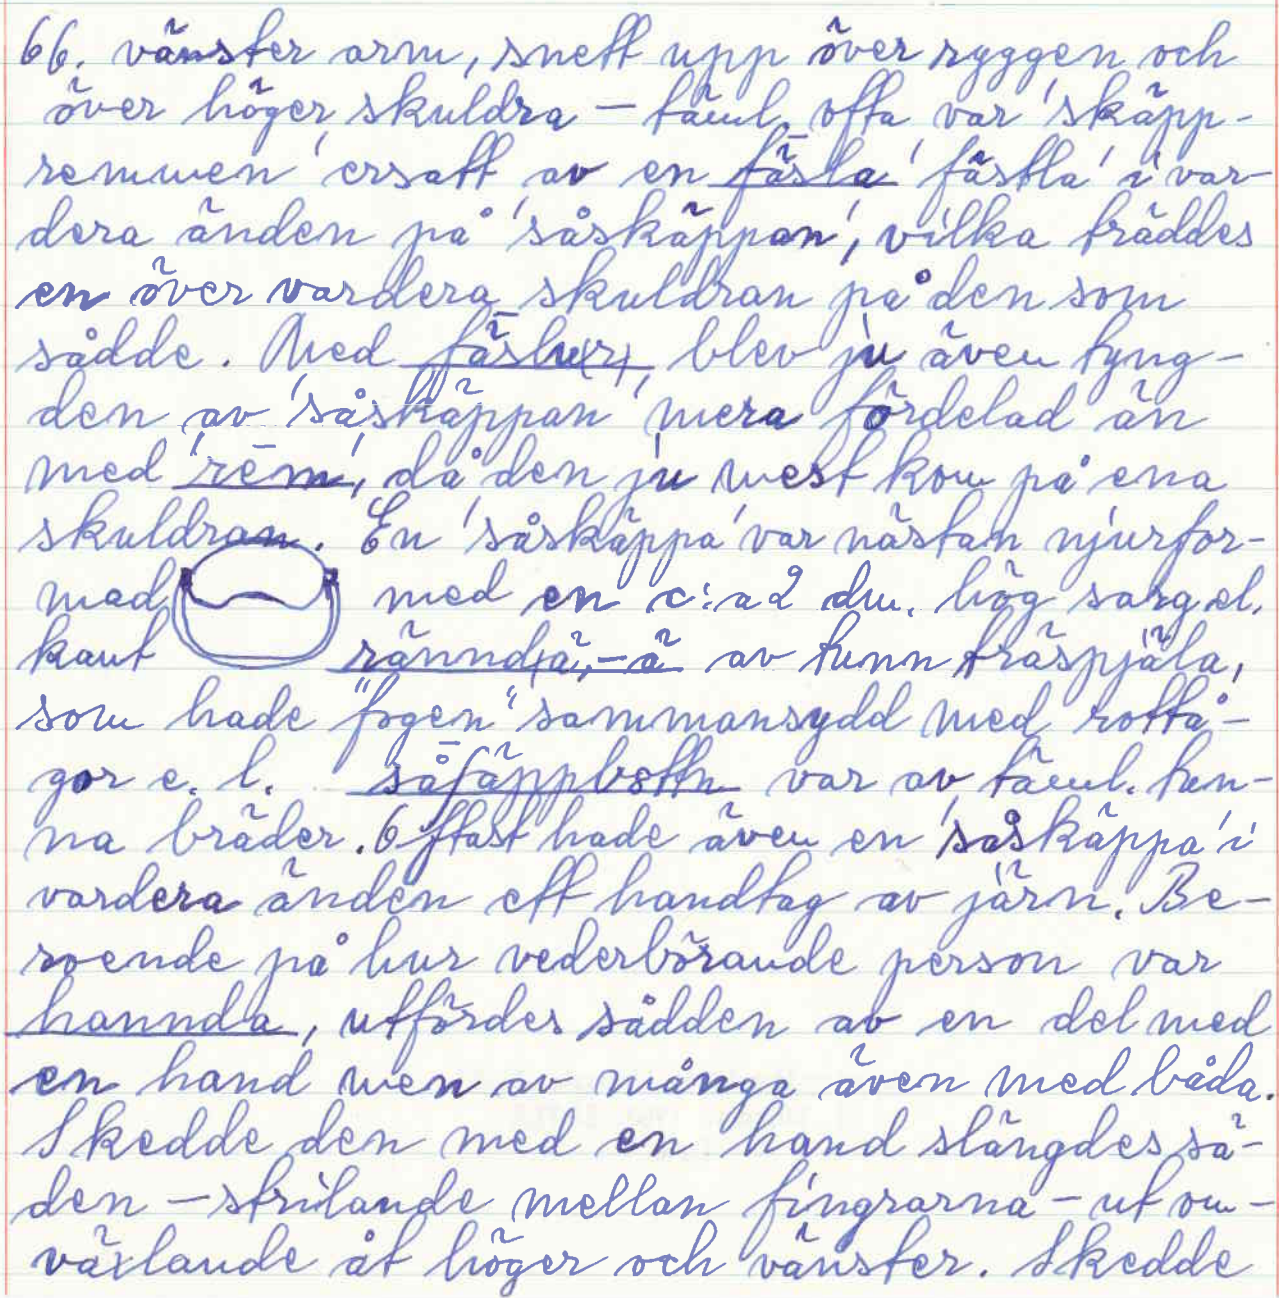 66. vänster arm, snett upp över ryggen och
över höger skuldra – täml. ofta var 'skäpp-
remmen' ersatt av en fästa 'fästla' i var-
dera änden på 'såskäppan', vilka träddes
en över vardera skuldran på den som
sådde. Med fästu(r), blev ju även tyng-
den av 'såskäppan' mera fördelad än
med 'rēm', då den ju mest kom på ena
skuldran. En 'såskäppa' var nästan njurfor-
mad med en c:a 2 dm. hög sarg el.
kant rännd(ä, -ä av tunn träspjäla,
som hade "fogen" sammansydd med rottå-
gor e. l. såfäppbottn var av täml. tun-
na bräder. Oftast hade även en 'såskäppa' i
vardera änden ett handtag av järn. Be-
roende på hur vederbörande person var
hannda, utfördes sådden av en del med
en hand men av många även med båda.
Skedde den med en hand slängdes sä-
den – strilande mellan fingrarna – ut om-
växlande åt höger och vänster. Skedde